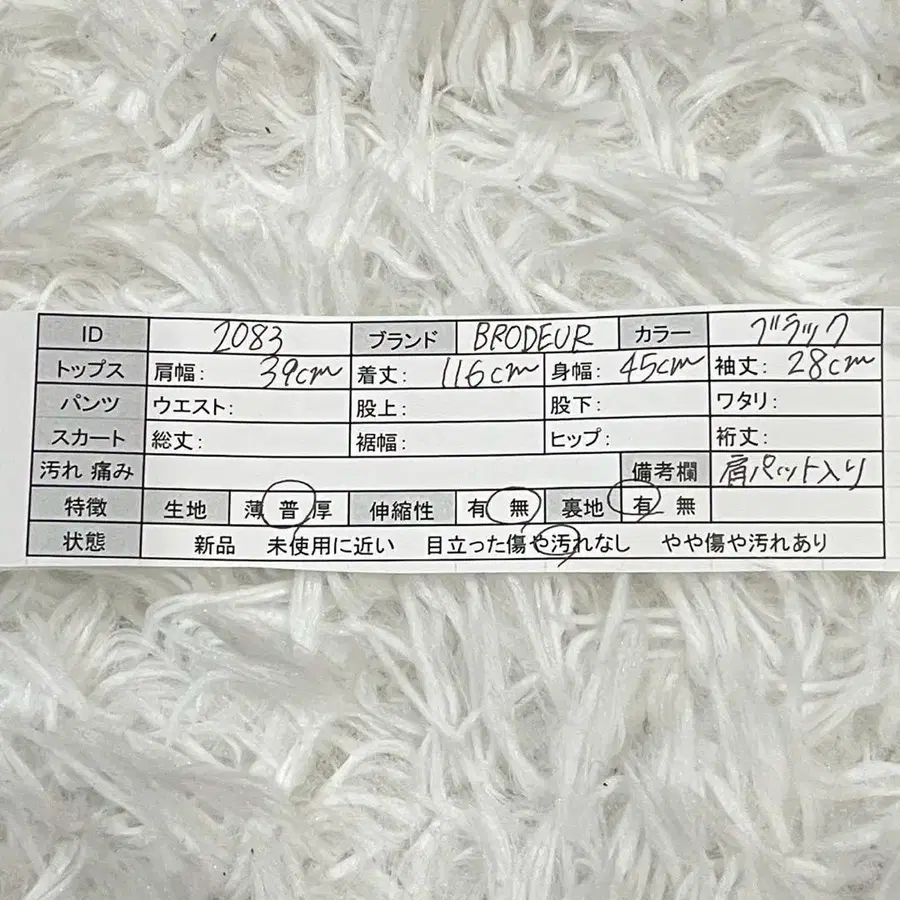 ID 2083 ブランド BRODEUR カラー ブラック
トップス 肩幅: 39cm 着丈: 116cm 身幅: 45cm 袖丈: 28cm
パンツ ウエスト: 股上: 股下: ワタリ:
スカート 総丈: 裾幅: ヒップ: 裄丈:
汚れ 痛み 備考欄 肩パット入り
特徴 生地 薄 普 厚 伸縮性 有 無 裏地 有 無
状態 新品 未使用に近い 目立った傷や汚れなし やや傷や汚れあり